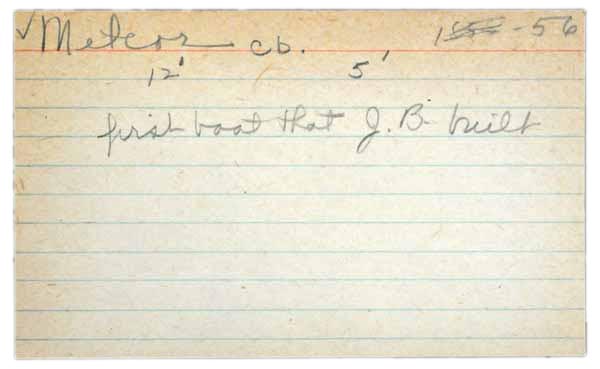 ✓ Meteor cb. 1 -56
12' 5'
first boat that J.B. built